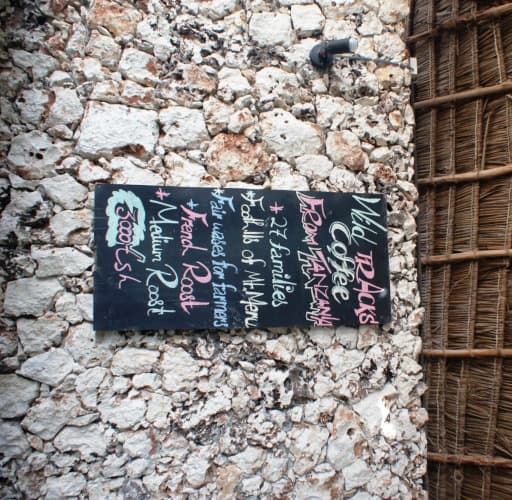 Wild TRACKS
Coffee
FROM TANZANIA
+ 27 families
+ Foothills of Mt. Meru
+ Fair wages for farmers
+ French Roast
+ Medium Roast
3000/Tsh